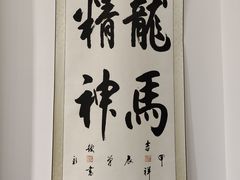 龍馬
精神
甲
吉祥
辰
書